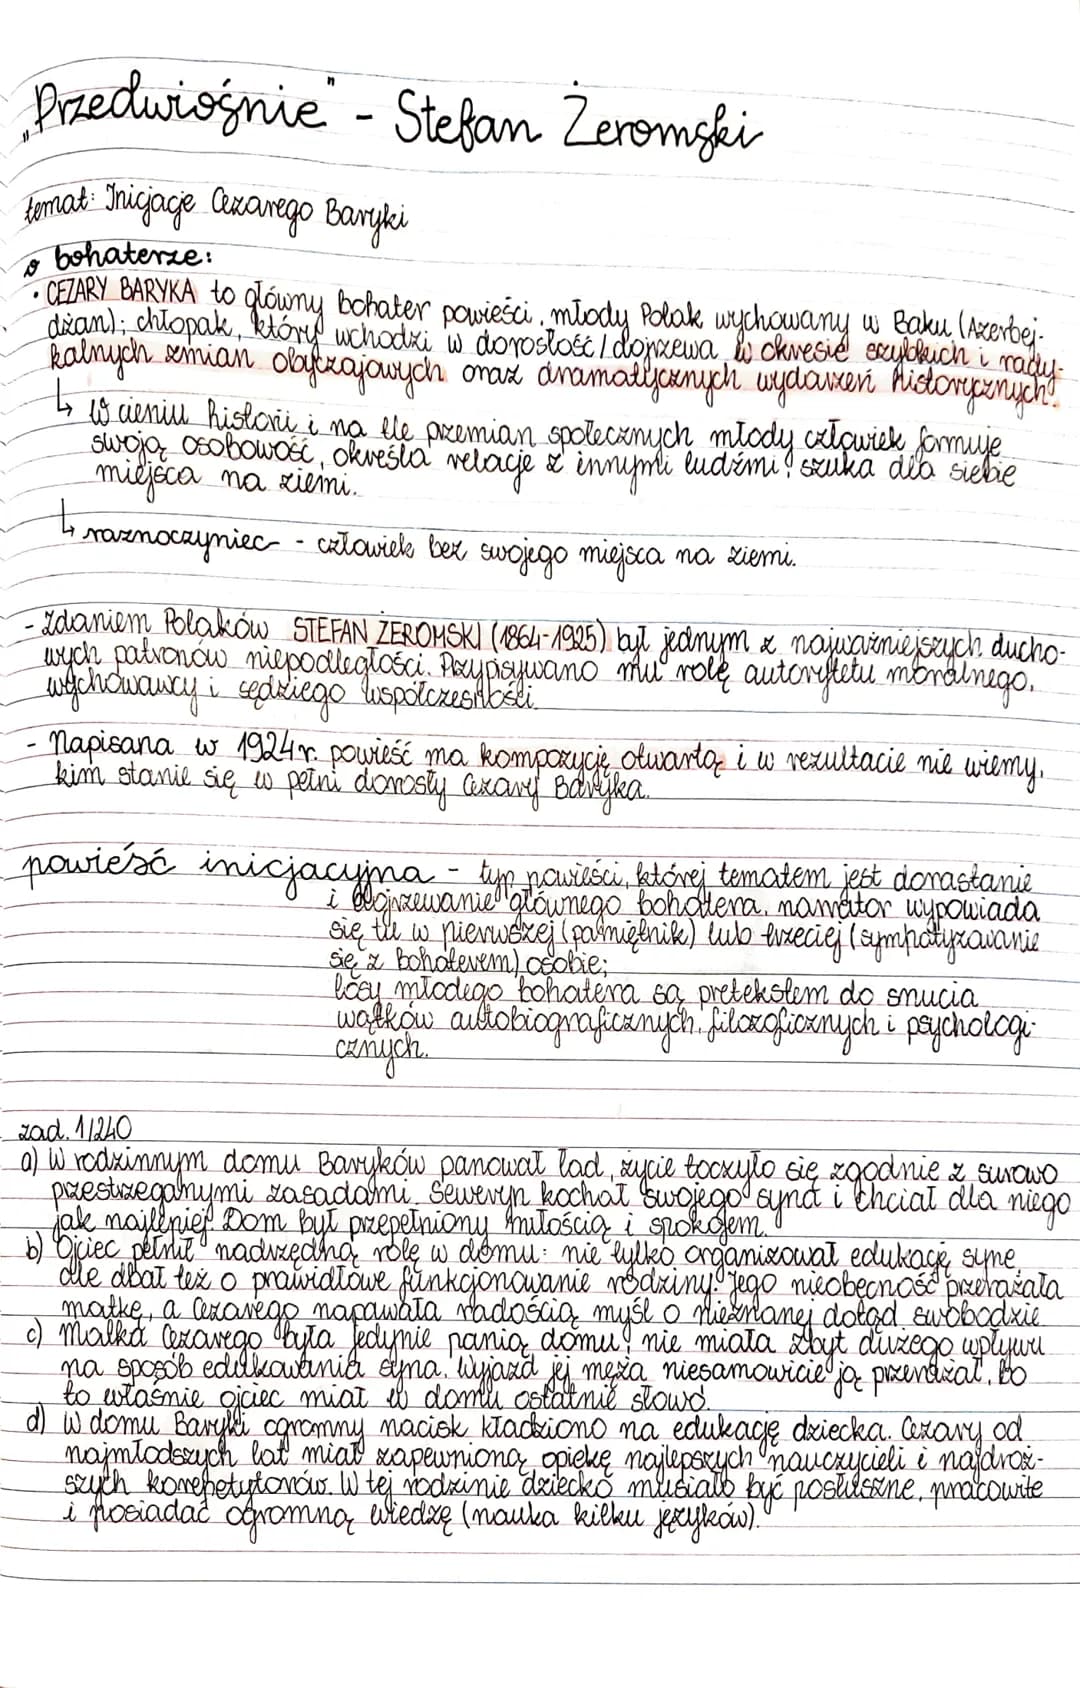 „Przedwiośnie" - Stefan Żeromski
temat: Inicjacje Cezarego Baryki
o bohaterze:
• CEZARY BARYKA to główny bohater powieści, młody Polak wychowany w Baku (Azerbej-
dżan); chłopak, który wchodzi w dorosłość / dojrzewa w okresie szybkich i rady-
kalnych zmian obyczajowych oraz dramatycznych wydarzeń historycznych.
↳ W cieniu historii i na tle przemian społecznych młody człowiek formuje
swoją osobowość, określa relacje z innymi ludźmi i szuka dla siebie
miejsca na ziemi.
↳ raznoczyniec - człowiek bez swojego miejsca na ziemi.
- Zdaniem Polaków STEFAN ŻEROMSKI (1864-1925) był jednym z najważniejszych ducho-
wych patronów niepodległości. Przypisywano mu rolę autorytetu moralnego,
wychowawcy i sędziego współczesności.
- Napisana w 1924r. powieść ma kompozycję otwartą i w rezultacie nie wiemy,
kim stanie się w pełni dorosły Cezary Baryka.
powieść inicjacyjna - typ powieści, której tematem jest dorastanie
i dojrzewanie głównego bohatera. narrator wypowiada
się tu w pierwszej (pamiętnik) lub trzeciej (sympatyzowanie
się z bohaterem) osobie;
losy młodego bohatera są pretekstem do snucia
wątków autobiograficznych, filozoficznych i psychologi-
cznych.
zad. 1/240
a) W rodzinnym domu Baryków panował ład, życie toczyło się zgodnie z surowo
przestrzeganymi zasadami. Seweryn kochał swojego syna i chciał dla niego
jak najlepiej. Dom był przepełniony miłością i spokojem.
b) Ojciec pełnił nadrzędną rolę w domu: nie tylko organizował edukację syna,
ale dbał też o prawidłowe funkcjonowanie rodziny. Jego nieobecność przerażała
matkę, a Cezarego napawała radością myśl o nieznanej dotąd swobodzie.
c) Matka Cezarego była jedynie panią domu, nie miała zbyt dużego wpływu
na sposób edukowania syna. Wyjazd jej męża niesamowicie ją przerażał, bo
to właśnie ojciec miał w domu ostatnie słowo.
d) W domu Baryki ogromny nacisk kładziono na edukację dziecka. Cezary od
najmłodszych lat miał zapewnioną opiekę najlepszych nauczycieli i najdroż-
szych korepetytorów. W tej rodzinie dziecko musiało być posłuszne, pracowite
i posiadać ogromną wiedzę (nauka kilku języków).